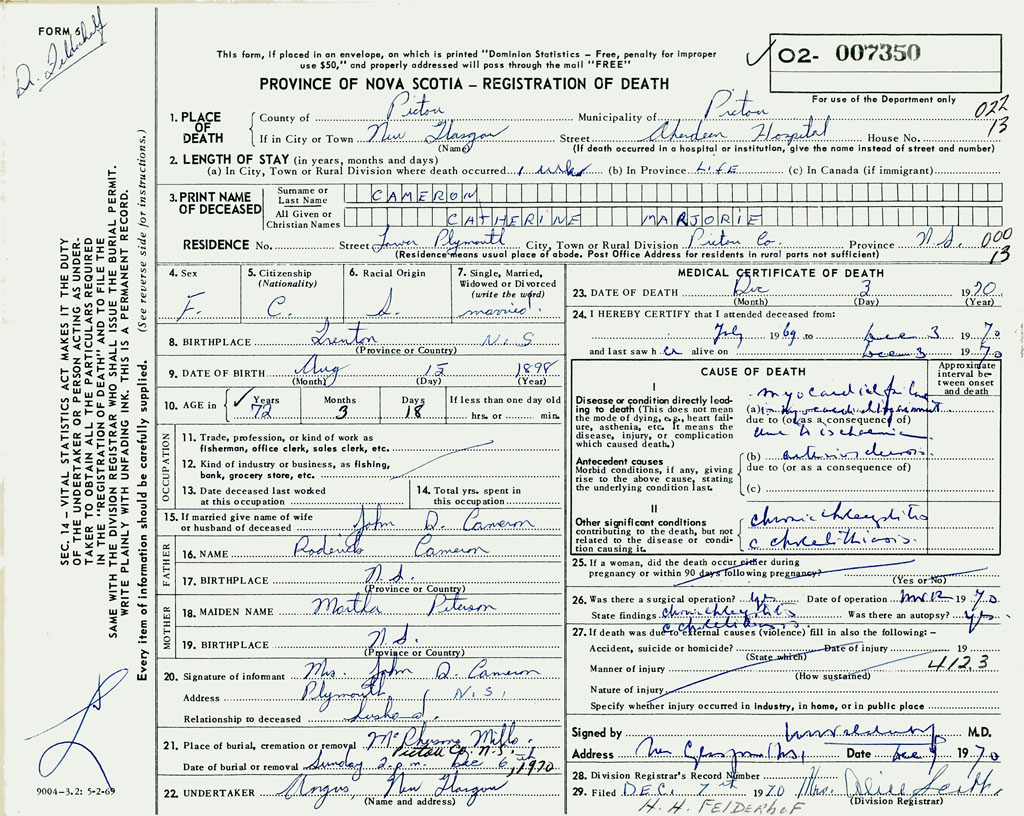 FORM 6
Dr. Felderhof
This form, if placed in an envelope, on which is printed "Dominion Statistics – Free, penalty for improper
use $50," and properly addressed will pass through the mail "FREE"
PROVINCE OF NOVA SCOTIA – REGISTRATION OF DEATH
✓ 02- 007350
For use of the Department only
022
13
1. PLACE OF DEATH
County of Pictou Municipality of Pictou
If in City or Town New Glasgow Street Aberdeen Hospital House No.
(Name) (If death occurred in a hospital or institution, give the name instead of street and number)
2. LENGTH OF STAY (in years, months and days)
(a) In City, Town or Rural Division where death occurred (b) In Province LIFE (c) In Canada (if immigrant)
3. PRINT NAME OF DECEASED
Surname or Last Name CAMERON
All Given or Christian Names CATHERINE MARJORIE
RESIDENCE No. Street Lower Plymouth City, Town or Rural Division Pictou Co. Province N.S. 000
(Residence means usual place of abode. Post Office Address for residents in rural parts not sufficient) 13
4. Sex F.
5. Citizenship (Nationality) C.
6. Racial Origin S.
7. Single, Married, Widowed or Divorced (write the word) married.
8. BIRTHPLACE Trenton N.S
(Province or Country)
9. DATE OF BIRTH Aug 15 1898
(Month) (Day) (Year)
10. AGE in ✓ Years 72 Months 3 Days 18 If less than one day old hrs. or min.
OCCUPATION
11. Trade, profession, or kind of work as
fisherman, office clerk, sales clerk, etc.
12. Kind of industry or business, as fishing,
bank, grocery store, etc.
13. Date deceased last worked
at this occupation
14. Total yrs. spent in
this occupation
15. If married give name of wife
or husband of deceased John D. Cameron
FATHER
16. NAME Roderick Cameron
17. BIRTHPLACE N.S.
(Province or Country)
MOTHER
18. MAIDEN NAME Martha Peterson
19. BIRTHPLACE N.S.
(Province or Country)
20. Signature of informant Mrs. John D. Cameron
Address Plymouth N.S.
Relationship to deceased husband.
21. Place of burial, cremation or removal McPhersons Mills.
Pictou Co. N.S.
Date of burial or removal Sunday 2 p.m. Dec 6th, 1970
22. UNDERTAKER Angus, New Glasgow
(Name and address)
MEDICAL CERTIFICATE OF DEATH
23. DATE OF DEATH Dec 3 1970
(Month) (Day) (Year)
24. I HEREBY CERTIFY that I attended deceased from:
July 1969 to Dec 3 1970
and last saw her alive on Dec 3 1970
CAUSE OF DEATH
Approximate interval between onset and death
I
Disease or condition directly leading
to death (This does not mean
the mode of dying, e.g., heart failure,
asthenia, etc. It means the
disease, injury, or complication
which caused death.)
myocardial failure
(a)
due to (or as a consequence of)
due to ischaemia
Antecedent causes
Morbid conditions, if any, giving
rise to the above cause, stating
the underlying condition last.
(b) arteriosclerosis.
due to (or as a consequence of)
(c)
II
Other significant conditions
contributing to the death, but not
related to the disease or condition
causing it.
chronic cholecystitis
c cholelithiasis.
25. If a woman, did the death occur either during
pregnancy or within 90 days following pregnancy?
(Yes or No)
26. Was there a surgical operation? yes Date of operation 1970
State findings chronic cholecystitis Was there an autopsy? yes
c cholelithiasis
27. If death was due to external causes (violence) fill in also the following: –
Accident, suicide or homicide? Date of injury 19
(State which)
Manner of injury 412.3
(How sustained)
Nature of injury
Specify whether injury occurred in industry, in home, or in public place
Signed by M.D.
Address New Glasgow N.S. Date Dec 1970
28. Division Registrar's Record Number
29. Filed DEC. 7th 1970 Mrs. Alice Scott
(Division Registrar)
H. H. FELDERHOF
SEC. 14 – VITAL STATISTICS ACT MAKES IT THE DUTY
OF THE UNDERTAKER OR PERSON ACTING AS UNDERTAKER
TO OBTAIN ALL THE PARTICULARS REQUIRED
IN THE "REGISTRATION OF DEATH" AND TO FILE THE
SAME WITH THE DIVISION REGISTRAR WHO SHALL ISSUE THE BURIAL PERMIT.
WRITE PLAINLY WITH UNFADING INK. THIS IS A PERMANENT RECORD.
Every item of information should be carefully supplied. (See reverse side for instructions.)
9004-3.2: 5-2-69